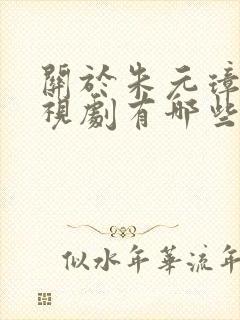 關於朱元璋
視劇有哪些
似水年華流年